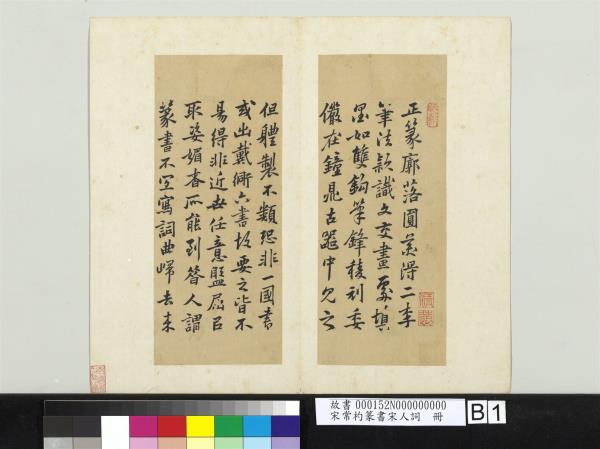 正篆廓落圓美得二李
筆法款識文交畫處填
墨如雙鈎筆鋒稜利委
儼在鐘鼎古器中見之
但體製不類恐非一國書
或出戴衕六書故要之皆不
易得非近世任意盤屈以
取姿媚者所能到昝人謂
篆書不宜寫詞曲歸去來
故書 000152N000000000
宋常杓篆書宋人詞 冊
B 1